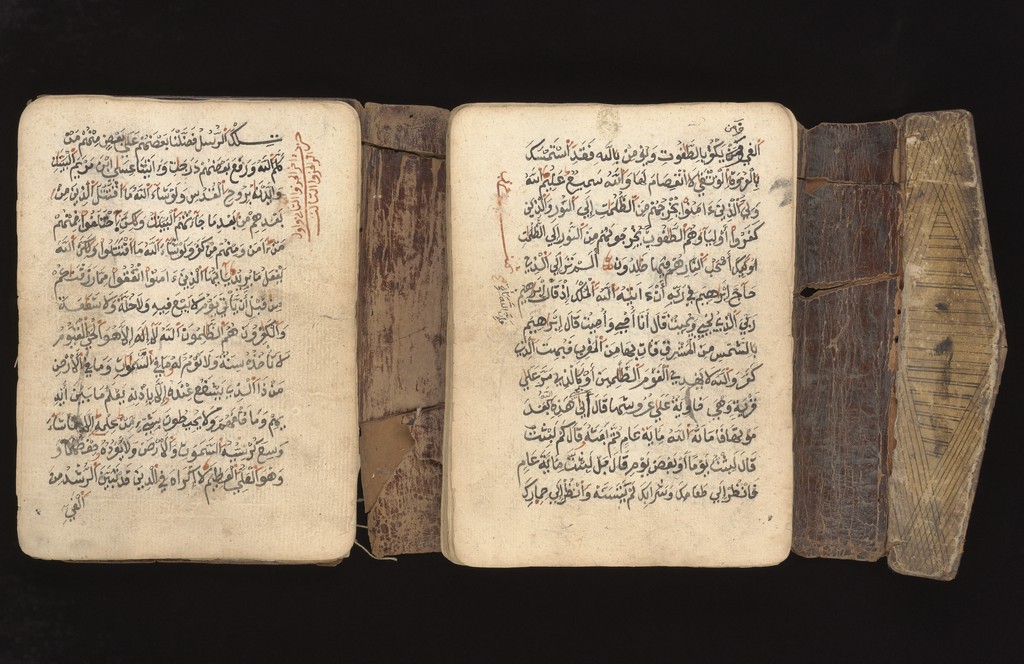 تلك الرسل فضلنا بعضهم على بعض منهم من
كلم الله ورفع بعضهم درجت وءاتينا عيسى ابن مريم البينت
وأيدنه بروح القدس ولو شاء الله ما اقتتل الذين من
بعدهم من بعد ما جاءتهم البينت ولكن اختلفوا فمنهم
من ءامن ومنهم من كفر ولو شاء الله ما اقتتلوا ولكن الله
يفعل ما يريد يأيها الذين ءامنوا أنفقوا مما رزقنكم
من قبل أن يأتي يوم لا بيع فيه ولا خلة ولا شفعة
والكفرون هم الظلمون الله لا إله إلا هو الحي القيوم
لا تأخذه سنة ولا نوم له ما في السموت وما في الأرض
من ذا الذي يشفع عنده إلا بإذنه يعلم ما بين أيد
يهم وما خلفهم ولا يحيطون بشيء من علمه إلا بما شاء
وسع كرسيه السموت والأرض ولا يؤده حفظهما و
وهو العلي العظيم لا إكراه في الدين قد تبين الرشد من
الغي
الغي فمن يكفر بالطغوت ويؤمن بالله فقد استمسك
بالعروة الوثقى لا انفصام لها والله سميع عليم الله
ولي الذين ءامنوا يخرجهم من الظلمت إلى النور والذين
كفروا أولياؤهم الطغوت يخرجونهم من النور إلى الظلمت
أولئك أصحب النار هم فيها خلدون ألم تر إلى الذي
حاج إبرهيم في ربه أن ءاتيه الله الملك إذ قال إبرهيم
ربي الذي يحي ويميت قال أنا أحي وأميت قال إبرهيم
بالشمس من المشرق فات بها من المغرب فبهت الذي
كفر والله لا يهدي القوم الظلمين أو كالذي مر على
قرية وهي خاوية على عروشها قال أنى يحي هذه الله بعد
موتها فأماته الله مائة عام ثم بعثه قال كم لبثت
قال لبثت يوما أو بعض يوم قال بل لبثت مائة عام
فانظر إلى طعامك وشرابك لم يتسنه وانظر إلى حمارك